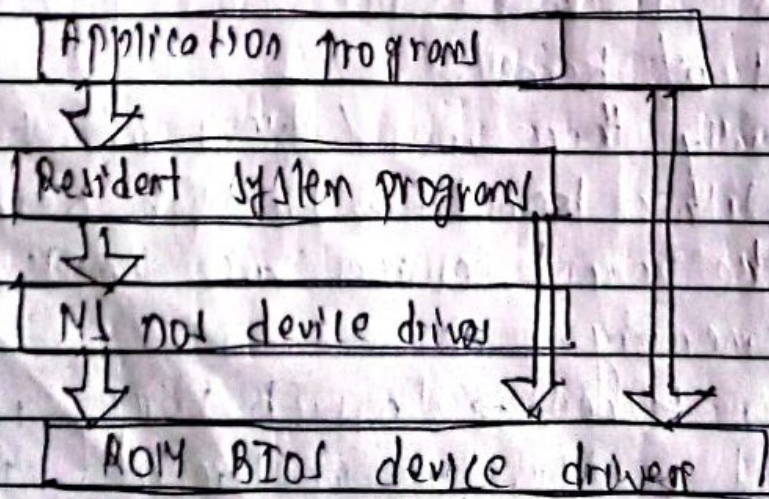 Application programs
Resident system programs
MS DOS device drives
ROM BIOS device drivers